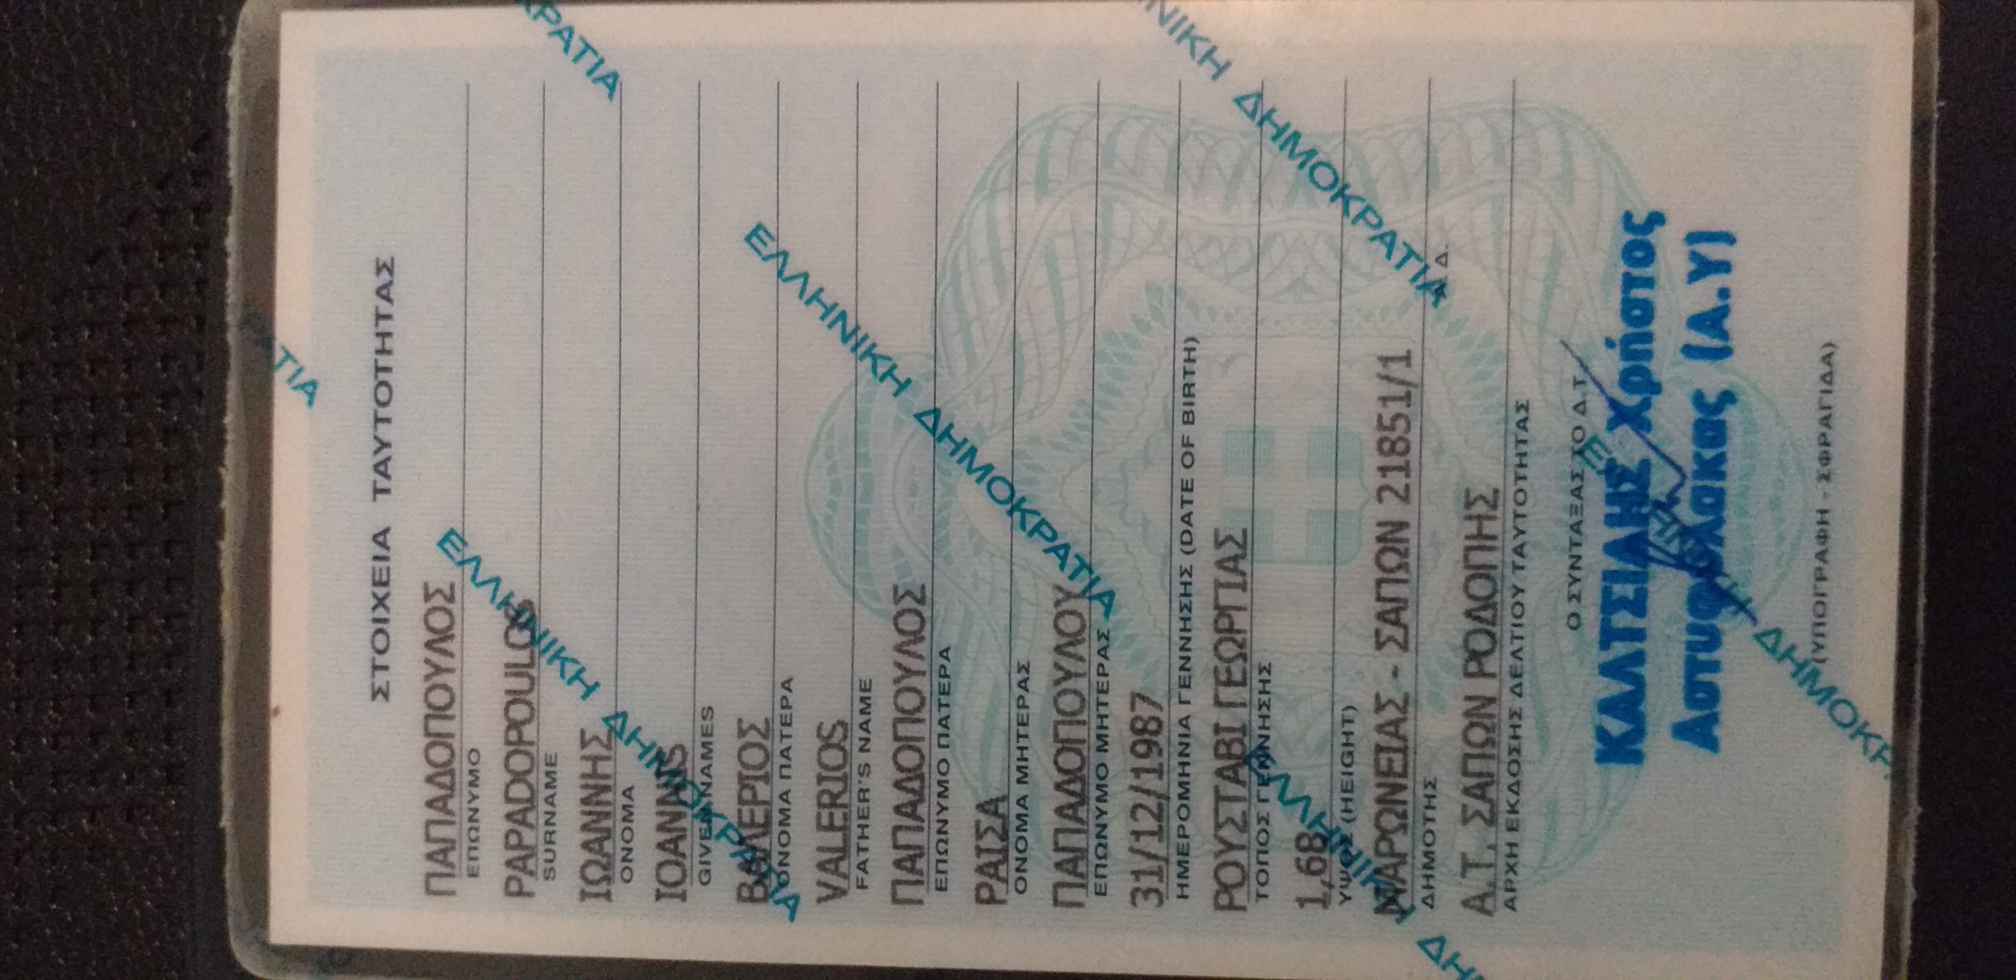 ΣΤΟΙΧΕΙΑ ΤΑΥΤΟΤΗΤΑΣ
ΠΑΠΑΔΟΠΟΥΛΟΣ
ΕΠΩΝΥΜΟ
PAPADOPOULOS
SURNAME
ΙΩΑΝΝΗΣ
ΟΝΟΜΑ
IOANNIS
GIVEN NAMES
ΒΑΛΕΡΙΟΣ
ΟΝΟΜΑ ΠΑΤΕΡΑ
VALERIOS
FATHER'S NAME
ΠΑΠΑΔΟΠΟΥΛΟΣ
ΕΠΩΝΥΜΟ ΠΑΤΕΡΑ
ΡΑΙΣΑ
ΟΝΟΜΑ ΜΗΤΕΡΑΣ
ΠΑΠΑΔΟΠΟΥΛΟΥ
ΕΠΩΝΥΜΟ ΜΗΤΕΡΑΣ
31/12/1987
ΗΜΕΡΟΜΗΝΙΑ ΓΕΝΝΗΣΗΣ (DATE OF BIRTH)
ΡΟΥΣΤΑΒΙ ΓΕΩΡΓΙΑΣ
ΤΟΠΟΣ ΓΕΝΝΗΣΗΣ
1,68
ΥΨΟΣ (HEIGHT)
ΜΑΡΩΝΕΙΑΣ - ΣΑΠΩΝ 21851/1
ΔΗΜΟΤΗΣ
Α.Τ. ΣΑΠΩΝ ΡΟΔΟΠΗΣ
ΑΡΧΗ ΕΚΔΟΣΗΣ ΔΕΛΤΙΟΥ ΤΑΥΤΟΤΗΤΑΣ
Ο ΣΥΝΤΑΞΑΣ ΤΟ Δ.Τ.
ΚΑΛΤΣΙΔΗΣ Χρήστος
Αστυφύλακας (Α.Υ)
(ΥΠΟΓΡΑΦΗ - ΣΦΡΑΓΙΔΑ)
ΕΛΛΗΝΙΚΗ ΔΗΜΟΚΡΑΤΙΑ
ΕΛΛΗΝΙΚΗ ΔΗΜΟΚΡΑΤΙΑ
ΝΙΚΗ ΔΗΜΟΚΡΑΤΙΑ
ΚΡΑΤΙΑ
ΤΙΑ
ΕΛΛΗΝΙΚΗ ΔΗ
ΔΗΜΟΚΡ